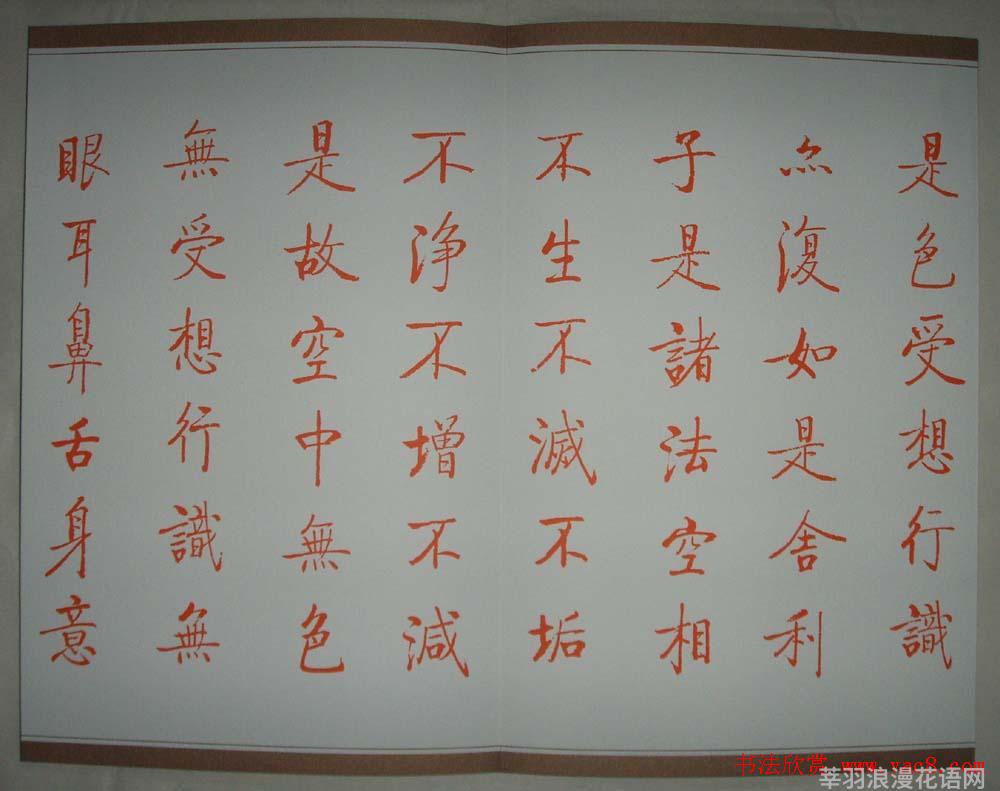 是色受想行識
亦復如是舍利
子是諸法空相
不生不滅不垢
不浄不增不減
是故空中無色
無受想行識無
眼耳鼻舌身意
书法欣赏 www.yac8.com
莘羽浪漫花语网